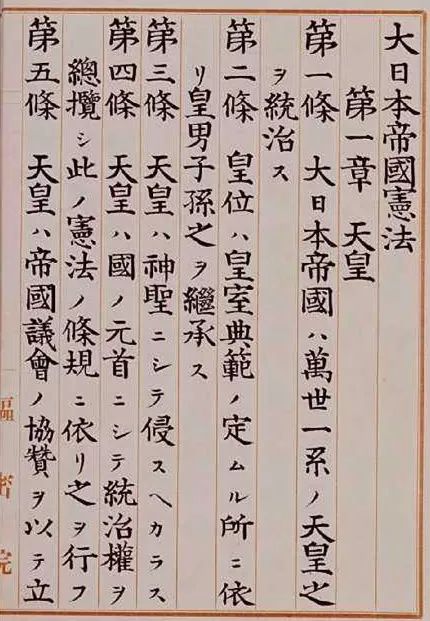 大日本帝國憲法
第一章 天皇
第一條 大日本帝國ハ萬世一系ノ天皇之
ヲ統治ス
第二條 皇位ハ皇室典範ノ定ムル所ニ依
リ皇男子孫之ヲ繼承ス
第三條 天皇ハ神聖ニシテ侵スヘカラス
第四條 天皇ハ國ノ元首ニシテ統治權ヲ
總攬シ此ノ憲法ノ條規ニ依リ之ヲ行フ
第五條 天皇ハ帝國議會ノ協贊ヲ以テ立
密院